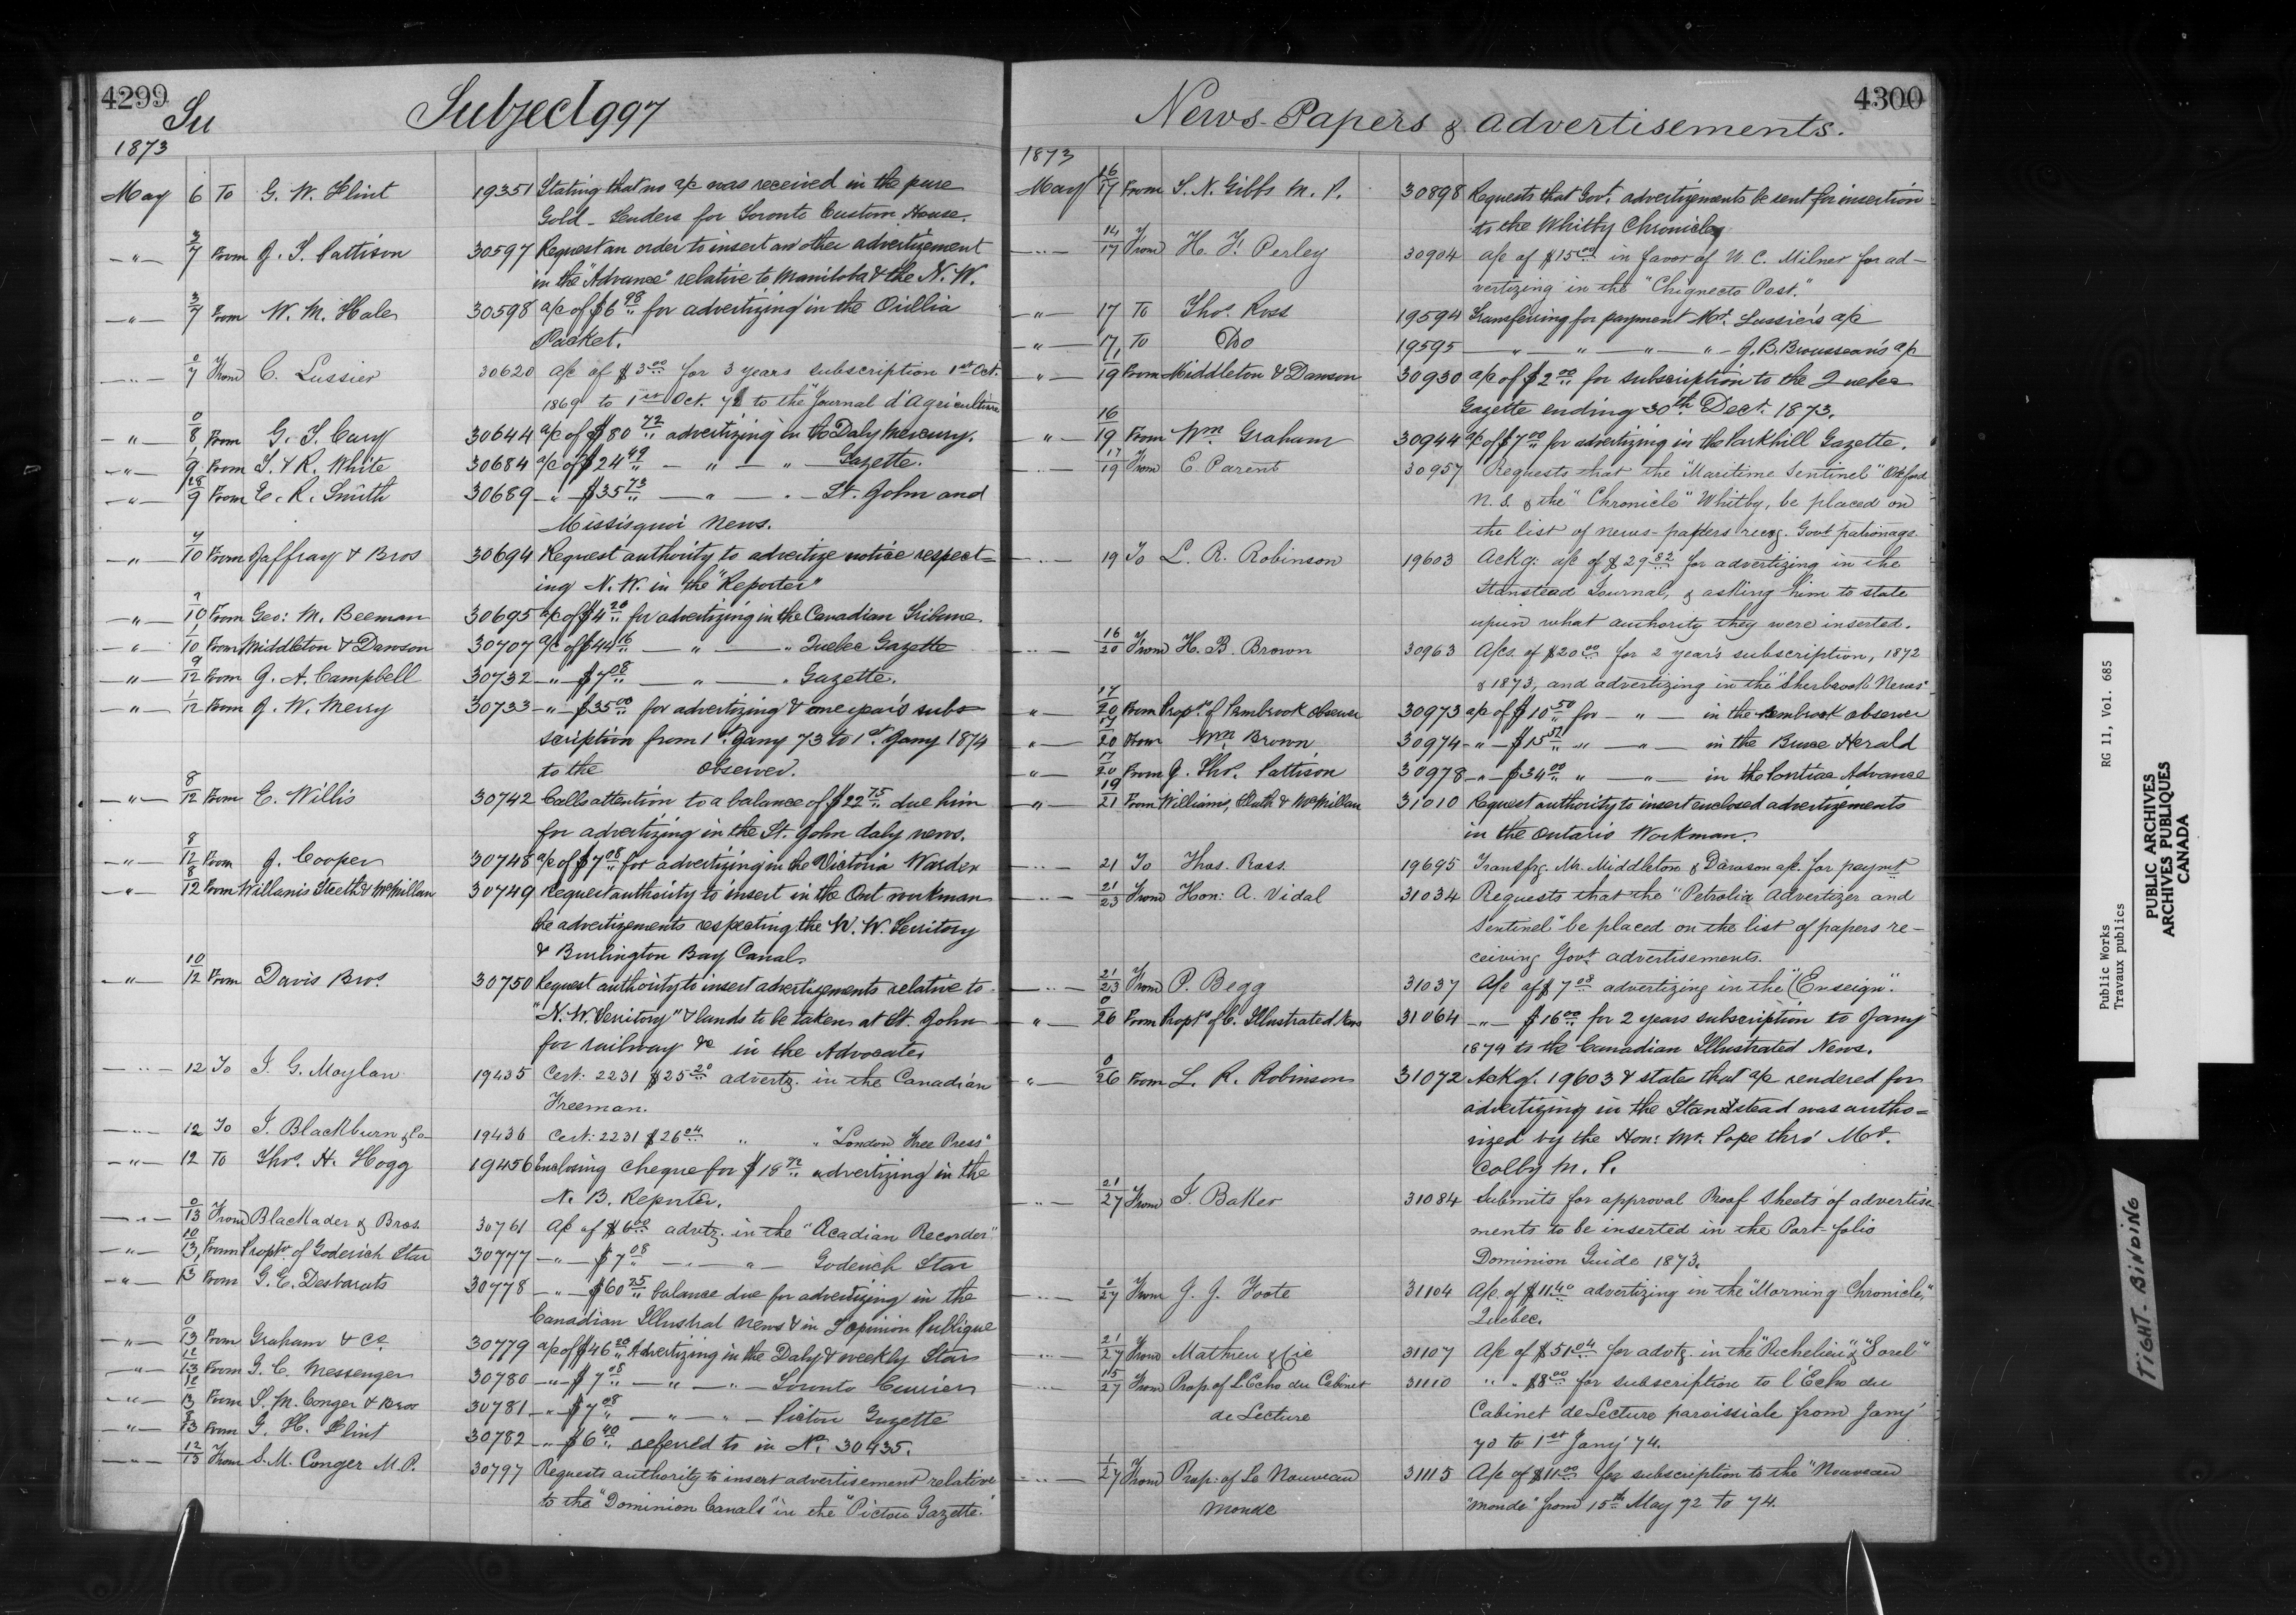 4299
Su
Subject 997
1873
May 6 To G. W. Flint 19351 Stating that no a/c was received in the pure
Gold - Tenders for Toronto Custom House.
-"- 3/7 From J. T. Pattison 30597 Request an order to insert another advertizement
in the "Advance" relative to Manitoba & the N. W.
-"- 3/7 From W. M. Hale 30598 a/c of $6.98 for advertizing in the Orillia
Packet.
-"- 0/7 From C. Lussier 30620 a/c of $3.00 for 3 years subscription 1st Oct.
1869 to 1st Oct. 72 to the "Journal d'Agriculture
-"- 0/8 From G. T. Cary 30644 a/c of $80.72 advertizing in the Daly Mercury.
-"- 1/9 From T. & R. White 30684 a/c of $24.49 - " - " - Gazette.
-"- 28/9 From E. R. Smith 30689 -"- $35.73 - " - " - St. John and
Missisquoi News.
-"- 7/10 From Jaffray & Bros 30694 Request authority to advertize notice respect=
ing N. W. in the "Reporter"
-"- 7/10 From Geo: M. Beeman 30695 a/c of $4.20 for advertizing in the Canadian Tribune.
-"- 1/10 From Middleton & Dawson 30707 a/c of $44.16 - " - " Quebec Gazette
-"- 9/12 From G. A. Campbell 30732 -"- $7.08 - " - " Gazette.
-"- 1/12 From J. W. Merry 30733 -"- $35.00 for advertizing & one year's sub=
scription from 1st Jany 73 to 1st Jany 1874
to the observer.
-"- 8/12 From E. Willis 30742 Calls attention to a balance of $22.75 due him
for advertizing in the St. John daly news.
-"- 8/12 From J. Cooper 30748 a/c of $7.08 for advertizing in the Victoria Warden
-"- 8/12 From Willams Sleeth & McMillan 30749 Request authority to insert in the Ont workman
the advertizements respecting the N. W. Territory
& Burlington Bay Canal.
-"- 10/12 From Davis Bros. 30750 Request authority to insert advertizements relative to
"N. W. Territory" & lands to be taken at St. John
for railway &c in the Advocate.
-"- 12 To J. G. Moylan 19435 Cert: 2231 $25.20 advertz. in the Canadian
Freeman.
-"- 12 To J. Blackburn & Co 19436 Cert: 2231 $26.04 " " "London Free Press"
-"- 12 To Thos. H. Hogg 19456 Enclosing cheque for $18.72 advertizing in the
N. B. Reporter.
-"- 0/13 From Blackader & Bros. 30761 A/c of $6.00 advtz. in the "Acadian Recorder"
-"- 10/13 From Proptr of Goderich Star 30777 -"- $7.08 -"- " - Goderich Star
-"- 1/13 From G. E. Desbarats 30778 -"- $60.25 balance due for advertizing in the
Canadian Illustrat News & in L'opinion Publique
-"- 0/13 From Graham & Co. 30779 a/c of $46.20 Advertizing in the Daly & weekly Star
-"- 12/13 From G. C. Messenger 30780 -"- $7.08 - " - " - Toronto Courier
-"- 12/13 From S. M. Conger & Bros 30781 -"- $7.08 - " - " - Picton Gazette
-"- 8/13 From G. H. Flint 30782 -"- $6.40 referred to in No. 30435.
-"- 12/13 From S. M. Conger M. P. 30797 Requests authority to insert advertisement relative
to the "Dominion Canals" in the "Picton Gazette."
4300
News-Papers & Advertisements.
1873
May 16/17 From T. N. Gibbs M. P. 30898 Requests that Govt. advertizements be sent for insertion
to the Whitby Chronicle
-"- 14/17 From H. F. Perley 30904 a/c of $15.00 in favor of W. C. Milner for ad-
vertizing in the "Chignecto Post."
-"- 17 To Thos. Ross 19594 Transferring for payment Mr. Lussier's a/c
-"- 17 To Do 19595 - " - " - " - " - J. B. Brousseau's a/c
-"- 1/19 From Middleton & Dawson 30930 a/c of $2.00 for subscription to the Quebec
Gazette ending 30th Dect. 1873.
-"- 16/19 From Wm. Graham 30944 a/c of $7.00 for advertizing in the Parkhill Gazette.
-"- 17/19 From E. Parent 30957 Requests that the "Maritime Sentinel"
N. S. & the "Chronicle" Whitby, be placed on
the list of news-papers recvg. Govt patronage.
-"- 19 To L. R. Robinson 19603 Ackg. a/c of $29.82 for advertizing in the
Stanstead Journal, & asking him to state
upin what authority they were inserted.
-"- 16/20 From H. B. Brown 30963 A/cs. of $20.00 for 2 year's subscription, 1872
& 1873, and advertizing in the "Sherbrook News"
-"- 17/20 From Proptr. of Pembrook Observer 30973 a/c of $10.50 for - " - in the Pembrook observer
-"- 17/20 From Wm. Brown 30974 -"- $15.57 " - " - in the Bruce Herald
-"- 17/20 From J. Thos. Pattison 30978 -"- $34.00 " - " - in the Pontiac Advance
-"- 19/21 From Williams, Sleeth & McMillan 31010 Request authority to insert enclosed advertizements
in the Ontario Workman.
-"- 21 To Thos. Ross 19695 Transfrg. Mr. Middleton & Dawson a/c. for paymt
-"- 21/23 From Hon: A. Vidal 31034 Requests that the "Petrolia Advertizer and
Sentinel" be placed on the list of papers re-
ceiving Govt advertisements.
-"- 21/23 From P. Begg 31037 A/c of $7.08 advertizing in the "(Enseign".
-"- 0/26 From Proptr of C. Illustrated News 31064 -"- $16.00 for 2 years subscription to Jany
1874 to the Canadian Illustrated News.
-"- 0/26 From L. R. Robinson 31072 Ackg. 19603 & state that a/c rendered for
advertizing in the Stanstead was autho=
rized by the Hon: Mr. Pope thro' Mr.
Colby M. P.
-"- 21/27 From J. Baker 31084 Submits for approval Proof Sheets of advertise-
ments to be inserted in the Port-folio
Dominion Guide 1873.
-"- 0/27 From J. J. Foote 31104 A/c of $11.40 advertizing in the "Morning Chronicle,"
Quebec.
-"- 21/27 From Mathieu & Cie 31107 A/c of $51.04 for advtz. in the "Richelieu" & "Sorel"
-"- 15/27 From Prop. of L'Echo du Cabinet 31110 " " $8.00 for subscription to l'Echo du
de Lecture Cabinet de Lecture paroissiale from Jany'
70 to 1st Jany' 74.
-"- 1/27 From Prop: of Le Nouveau 31115 A/c of $11.00 for subscription to the "Nouveau
Monde "Monde" from 15th May 72 to 74.
Public Works RG 11, Vol. 685
Travaux publics
PUBLIC ARCHIVES
ARCHIVES PUBLIQUES
CANADA
TIGHT BINDING